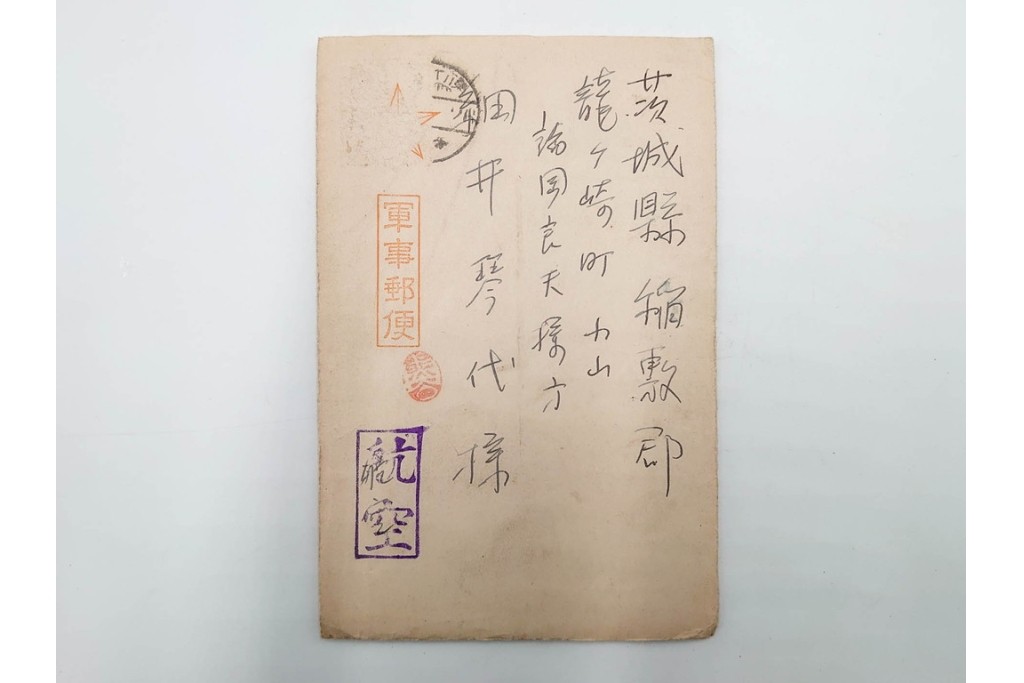 茨城縣稲敷郡
龍ケ崎町小山
諸岡良夫様方
田井琴代様
軍事郵便
航空